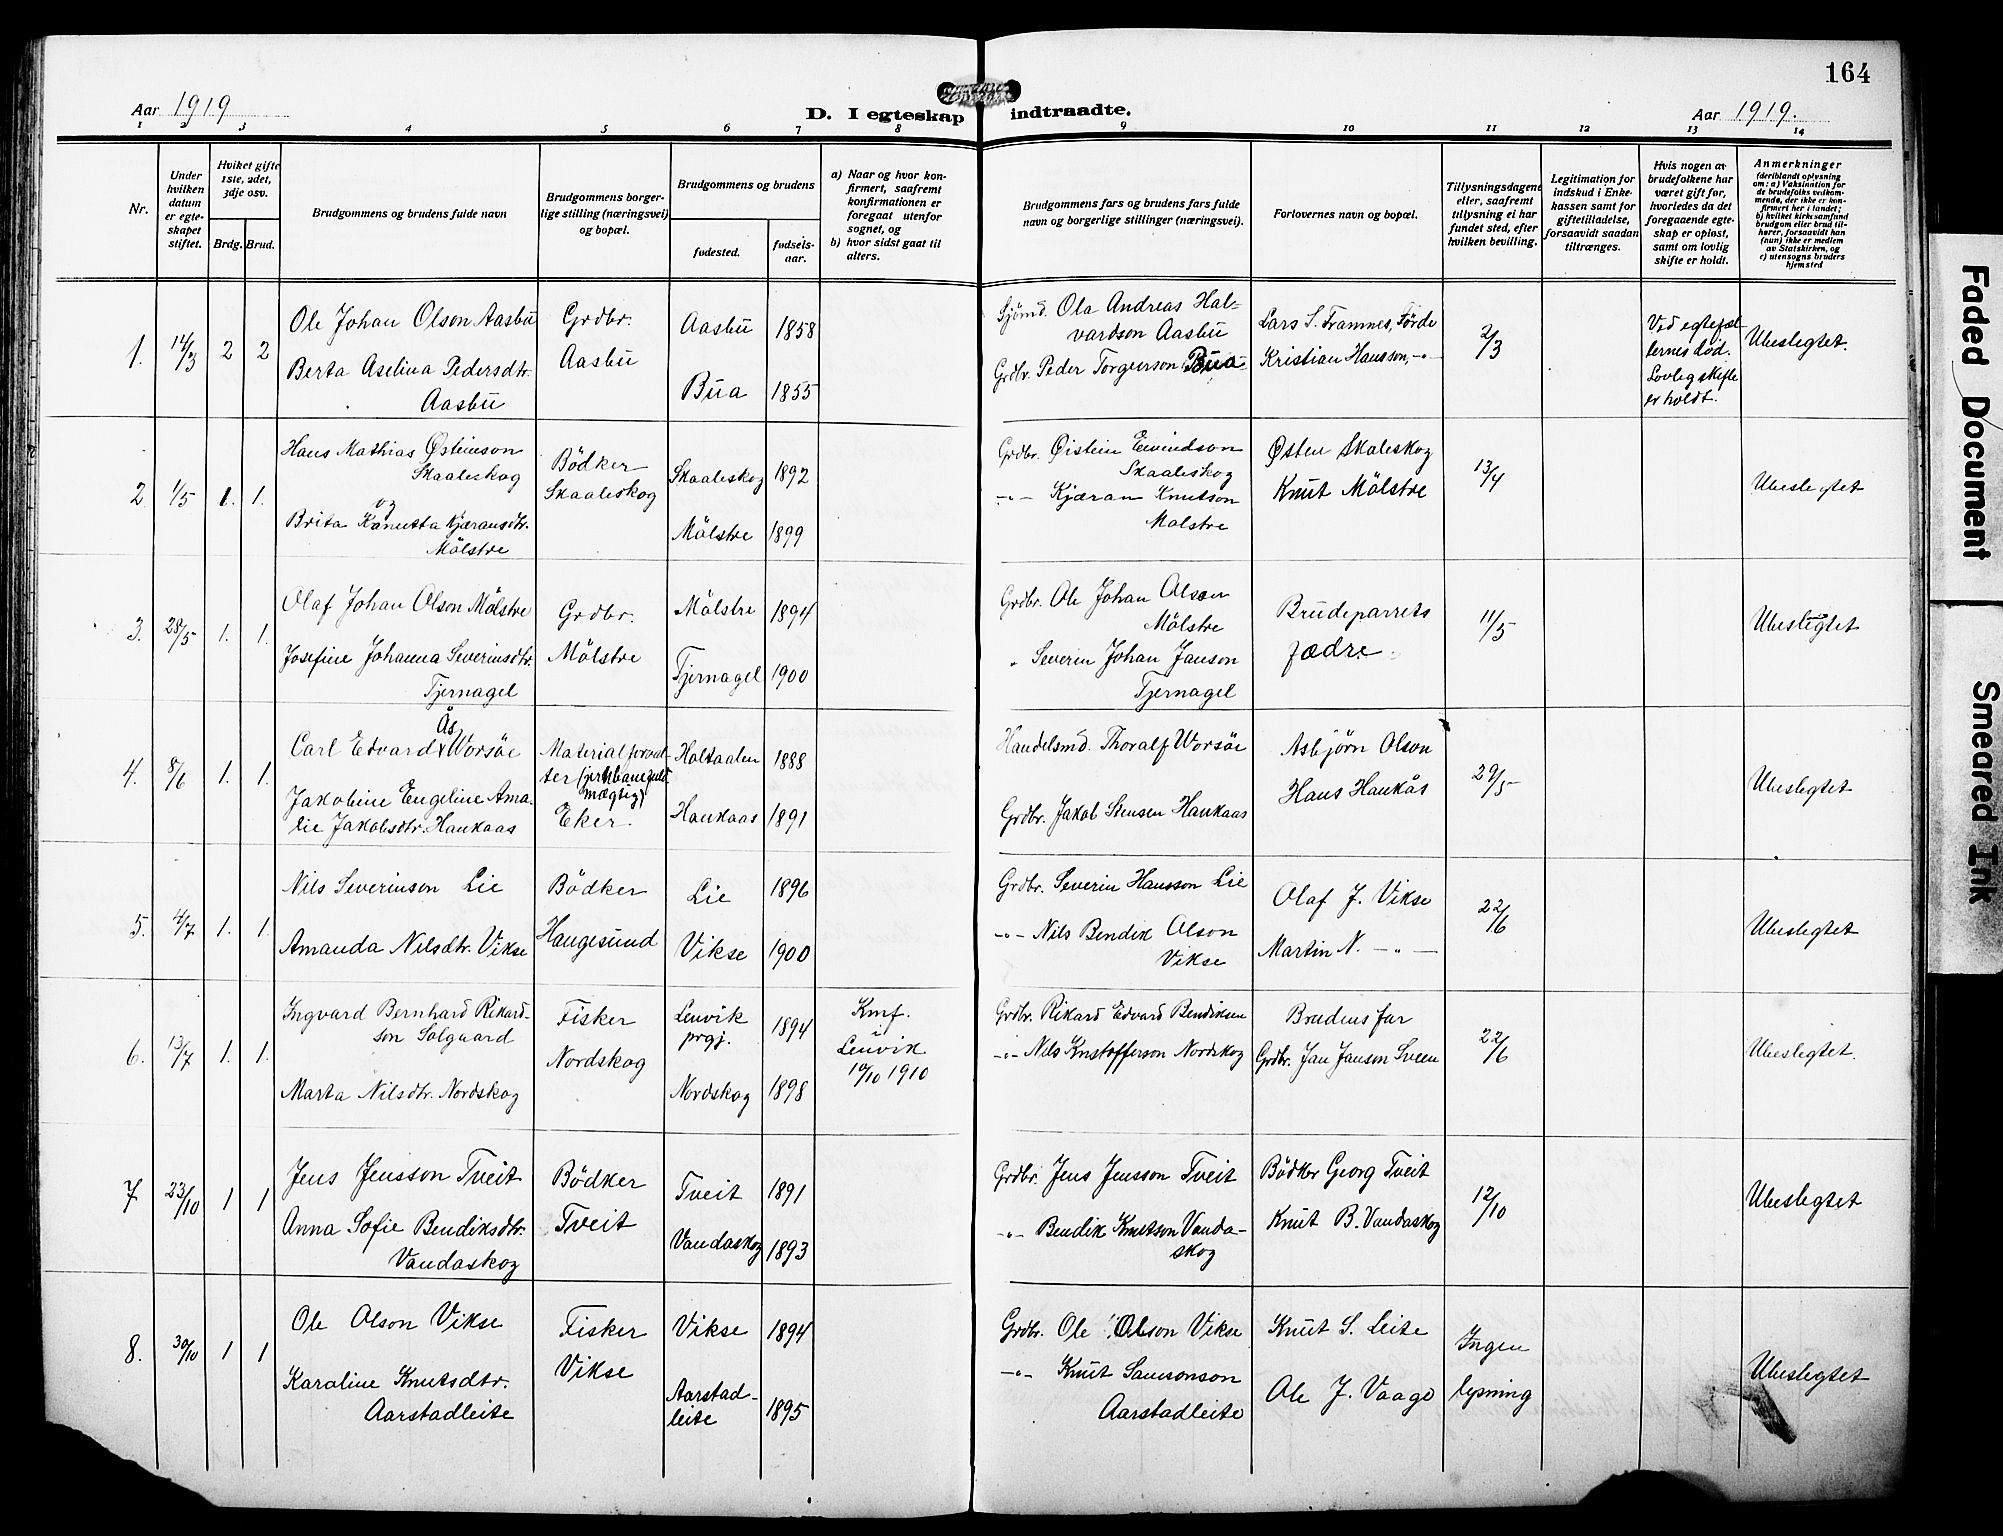 164
Aar 1919
D. I egteskap indtraadte.
Aar 1919.
1 2 3 4 5 6 7 8 9 10 11 12 13 14
Nr.
Under
hvilken
datum
er egte-
skapet
stiftet.
Hvilket gifte
1ste, 2det,
3dje osv.
Brdg. Brud.
Brudgommens og brudens fulde navn
Brudgommens borger-
lige stilling (næringsvei)
og bopæl.
Brudgommens og brudens
fødested.
fødsels-
aar.
a) Naar og hvor kon-
firmert, saafremt
konfirmationen er
foregaat utenfor
sognet, og
b) hvor sidst gaat til
alters.
Brudgommens fars og brudens fars fulde
navn og borgerlige stillinger (næringsvei).
Forlovernes navn og bopæl.
Tillysningsdagene
eller, saafremt
tillysning ei har
fundet sted, efter
hvilken bevilling.
Legitimation for
indskud i Enke-
kassen samt for
giftetilladelse,
forsaavidt saadan
tiltrænges.
Hvis nogen av
brudefolkene har
været gift før,
hvorledes da det
foregaaende egte-
skap er opløst,
samt om lovlig
skifte er holdt.
Anmerkninger
(deriblandt oplysning
om: a) Vaksination for
de brudefolks vedkom-
mende, der ikke er kon-
firmert her i landet;
b) hvilket kirkesamfund
brudgom eller brud til-
hører, forsaavidt han
(hun) ikke er medlem
av Statskirken, og
c) utensogns bruders
hjemsted
1. 14/3 2 2
Ole Johan Olson Aasbu
Berta Aselina Pedersdtr.
Aasbu
Grdbr.
Aasbu
Aasbu 1858
Bua 1855
Sjömd. Ola Andreas Hal-
vardson Aasbu
Grdbr. Peder Torgerson Bua
Lars S. Framnes, Förde
Kristian Hansson, -"-
2/3
Ved egtefæl-
lernes död.
Lovleg skifte
er holdt.
Ubeslegtet.
2 1/5 1. 1.
Hans Mathias Østeinson
Skaaleskog
og
Brita Kanutta Kjæransdtr.
Mölstre
Bödker
Skaaleskog
Skaaleskog 1892
Mölstre 1899
Grdbr. Øistein Eivindson
Skaaleskog
-"- Kjæran Knutson
Mölstre
Østen Skaleskog
Knut Mölstre
13/4
Ubeslegtet
3. 28/5 1. 1.
Olaf Johan Olson Mölstre
Josefine Johanna Severinsdtr.
Tjernagel
Grdbr.
Mölstre
Mölstre 1894
Tjernagel 1900
Grdbr. Ole Johan Olson
Mölstre
" Severin Johan Janson
Tjernagel
Brudeparrets
fædre.
11/5
Ubeslegtet
4. 8/6 1. 1.
Ås
Carl Edvard Worsöe
Jakobine Engeline Ama-
lie Jakobsdtr. Haukaas
Materialforval-
ter (jernbanefuld-
mægtig)
Eker.
Holtaalen 1888
Haukaas 1891
Handelsmd. Thoralf Worsöe
Grdbr. Jakob Stensen Haukaas
Asbjørn Olson
Hans Haukås
29/5
Ubeslegtet
5. 4/7 1. 1.
Nils Severinson Lie
Amanda Nilsdtr. Vikse
Bödker
Haugesund
Lie 1896
Vikse 1900
Grdbr. Severin Hansson Lie
-"- Nils Bendik Olson
Vikse
Olaf J. Vikse
Martin N. -"-
22/6
Ubeslegtet
6. 13/7 1. 1.
Ingvard Bernhard Rikard-
son Solgaard
Marta Nilsdtr. Nordskog
Fisker
Nordskog
Lenvik
prgj. 1894
Nordskog 1898
Kmf.
i
Lenvik
10/10 1910
Grdbr. Rikard Edvard Bendiksen
-"- Nils Kristofferson Nordskog
Brudens far
Grdbr. Jan Janson Sveen
22/6
Ubeslegtet.
7 23/10 1 1
Jens Jensson Tveit
Anna Sofie Bendiksdtr.
Vandaskog
Bödker
Tveit
Tveit 1891
Vandaskog 1893
Grdbr. Jens Jensson Tveit
-"- Bendik Knutson Vanda-
skog
Bödker Georg Tveit
Knut B. Vandaskog
12/10
Ubeslegtet
8. 30/10 1 1
Ole Olson Vikse
Karoline Knutsdtr.
Aarstadleite
Fisker
Vikse
Vikse 1894
Aarstad-
leite 1895
Grdbr. Ole Olson Vikse
-"- Knut Samsonson
Aarstadleite
Knut S. Leite
Ole J. Vaage
Ingen
lysning
Ubeslegtet
Faded Document
Smeared Ink